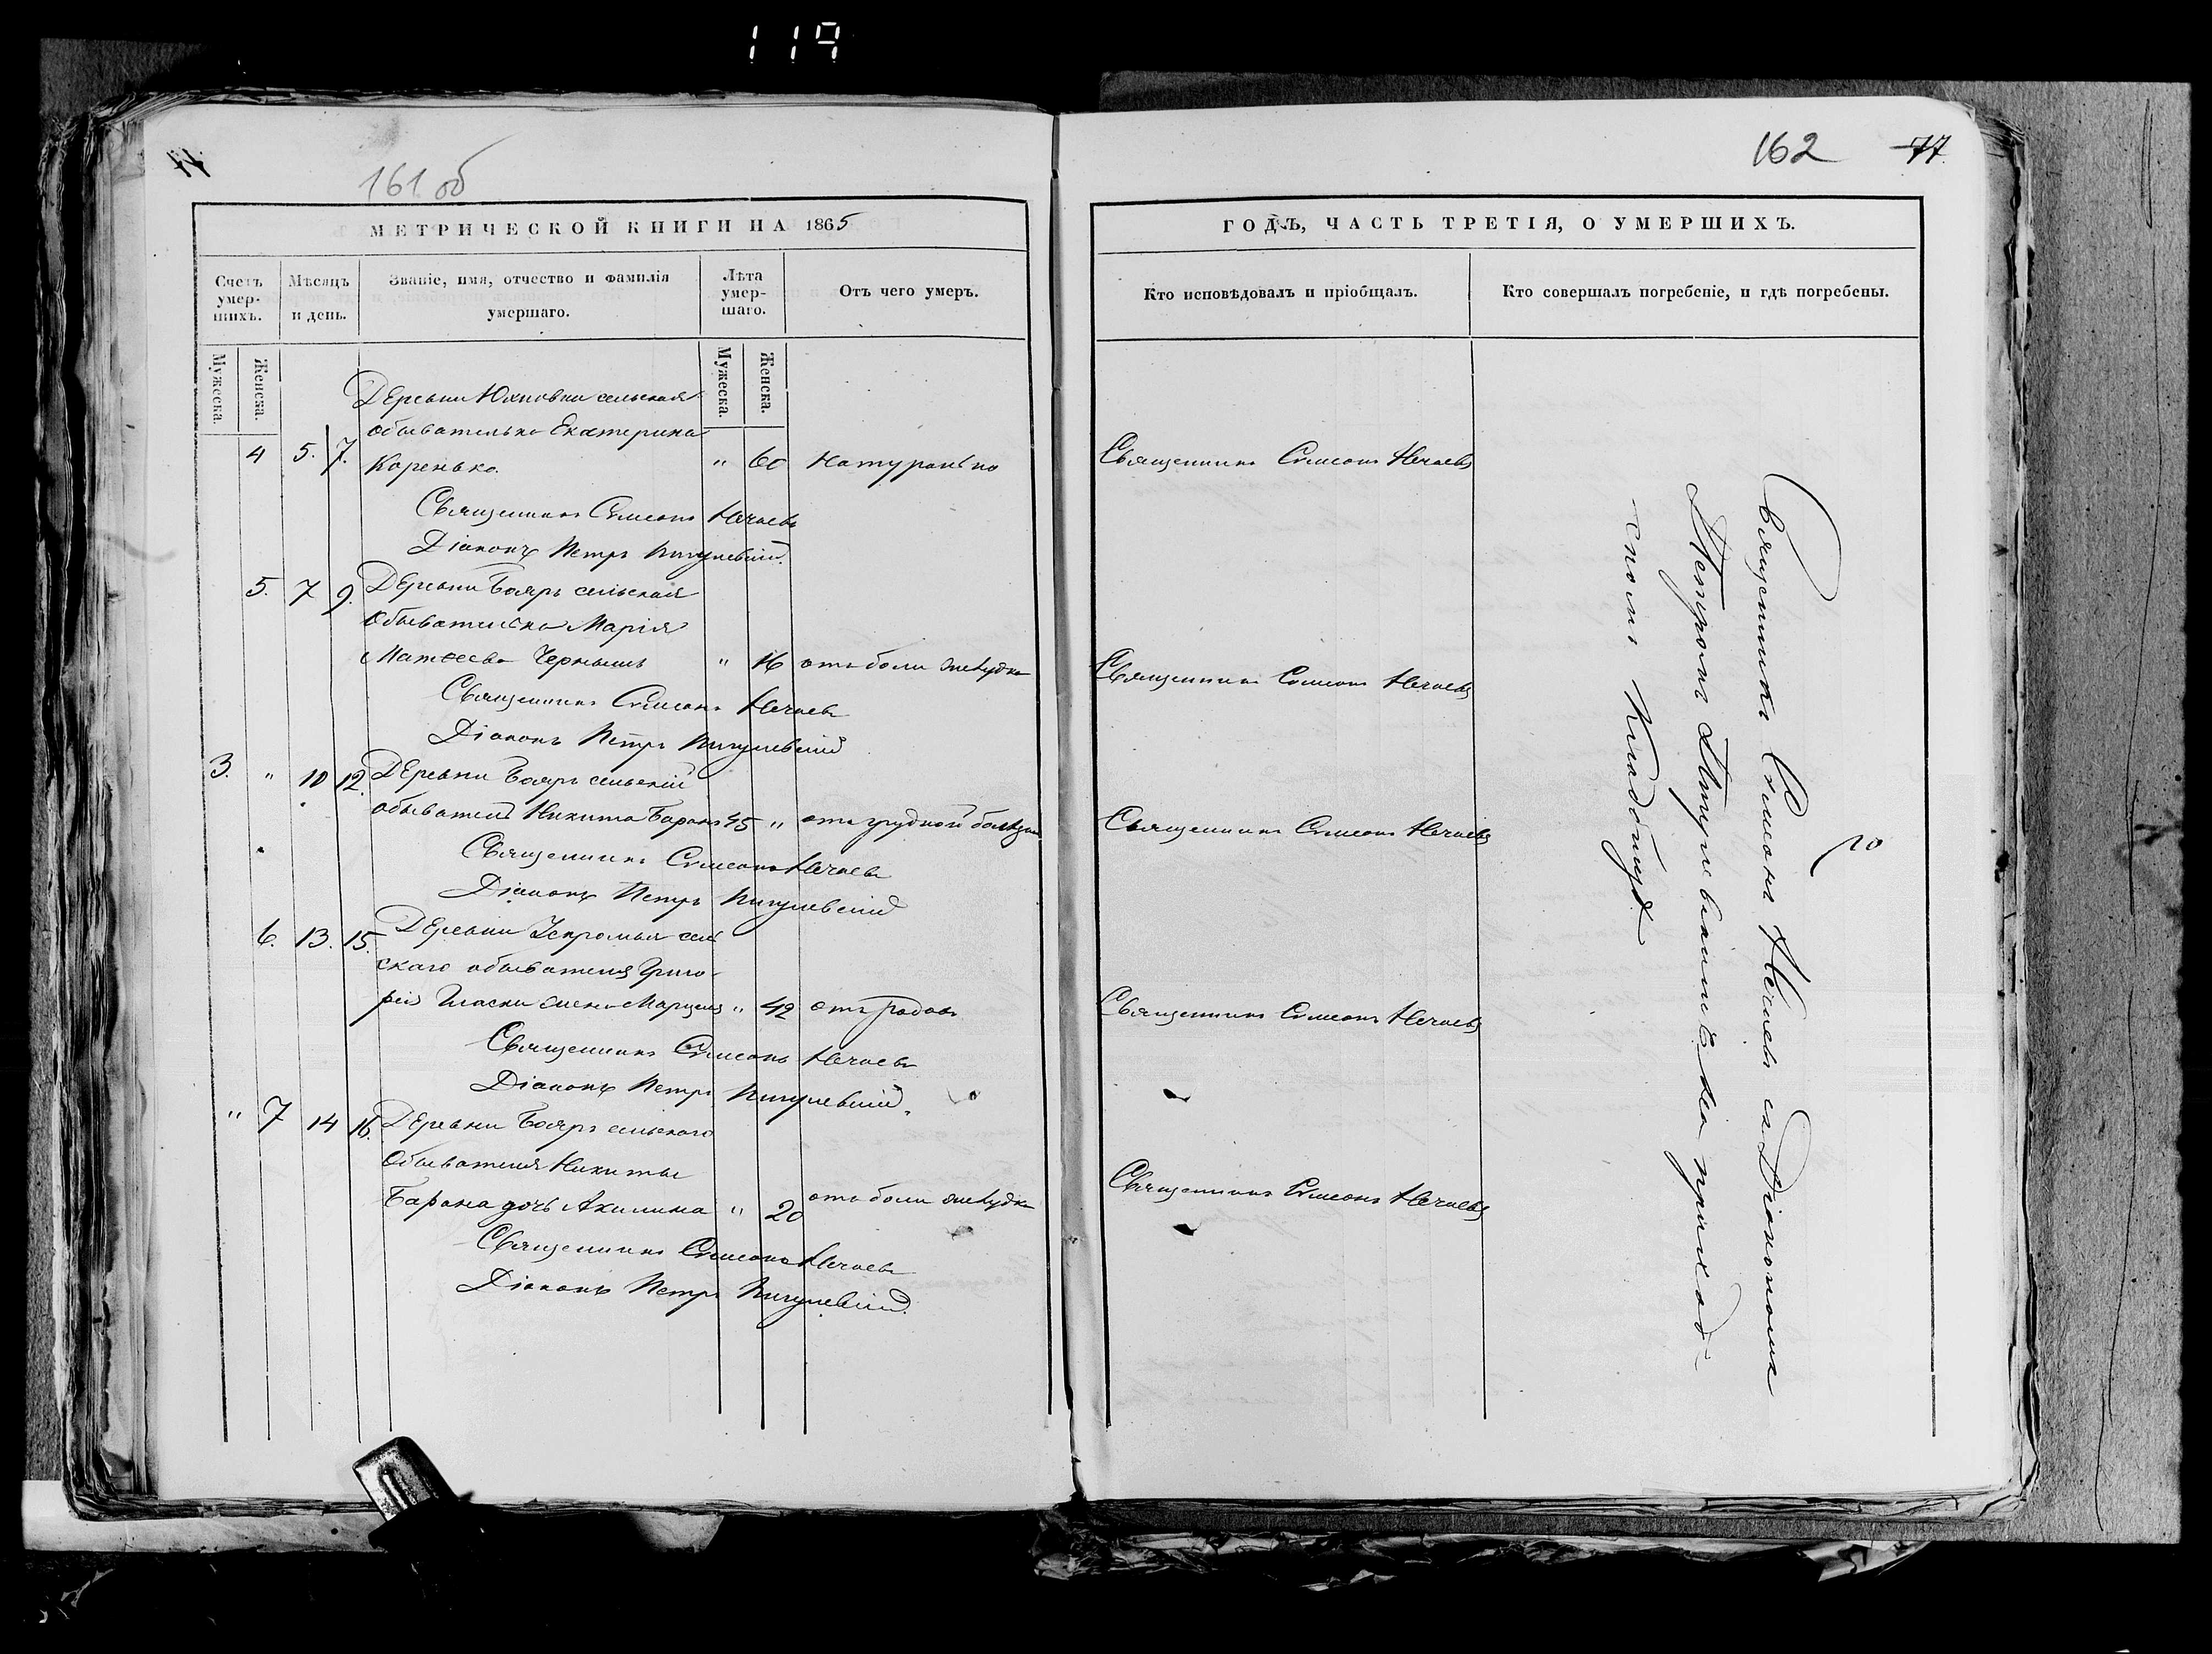 119
161 об
МЕТРИЧЕСКОЙ КНИГИ НА 1865
Счетъ умершихъ.
Мѣсяцъ и день.
Званіе, имя, отчество и фамилія умершаго.
Лѣта умершаго.
Отъ чего умеръ.
Мужеска.
Женска.
Мужеска.
Женска.
Деревни сельская
обывателька Екатерина
4 5. 7. Коренько. " 60 натурально
Священникъ Симеонъ Нечаевъ
Діаконъ Петръ Пигулевскій.
5. 7 9. Деревни Бояръ сельская
обывателька Марія
Матѳеева Чернышъ " 16 отъ боли желудка
Священникъ Симеонъ Нечаевъ
Діаконъ Петръ Пигулевскій
3. " 10 12. Деревни Бояръ сельскій
обыватель Никита Баранъ 45 " отъ грудной болѣзни
Священникъ Симеонъ Нечаевъ
Діаконъ Петръ Пигулевскій
6. 13. 15. Деревни сель
скаго обывателя Григо-
рія жена " 42 отъ родовъ
Священникъ Симеонъ Нечаевъ
Діаконъ Петръ Пигулевскій.
" 7 14 16. Деревни Бояръ сельскаго
обывателя Никиты
Барана дочь Акилина " 20 отъ боли желудка
Священникъ Симеонъ Нечаевъ
Діаконъ Петръ Пигулевскій.
162 77.
ГОДЪ, ЧАСТЬ ТРЕТІЯ, О УМЕРШИХЪ.
Кто исповѣдовалъ и пріобщалъ.
Кто совершалъ погребеніе, и гдѣ погребены.
Священникъ Симеонъ Нечаевъ
Священникъ Симеонъ Нечаевъ
Священникъ Симеонъ Нечаевъ
Священникъ Симеонъ Нечаевъ
Священникъ Симеонъ Нечаевъ
Священникъ Симеонъ Нечаевъ съ Діакономъ
Петромъ Пигулевскимъ на приход-
скомъ кладбищѣ